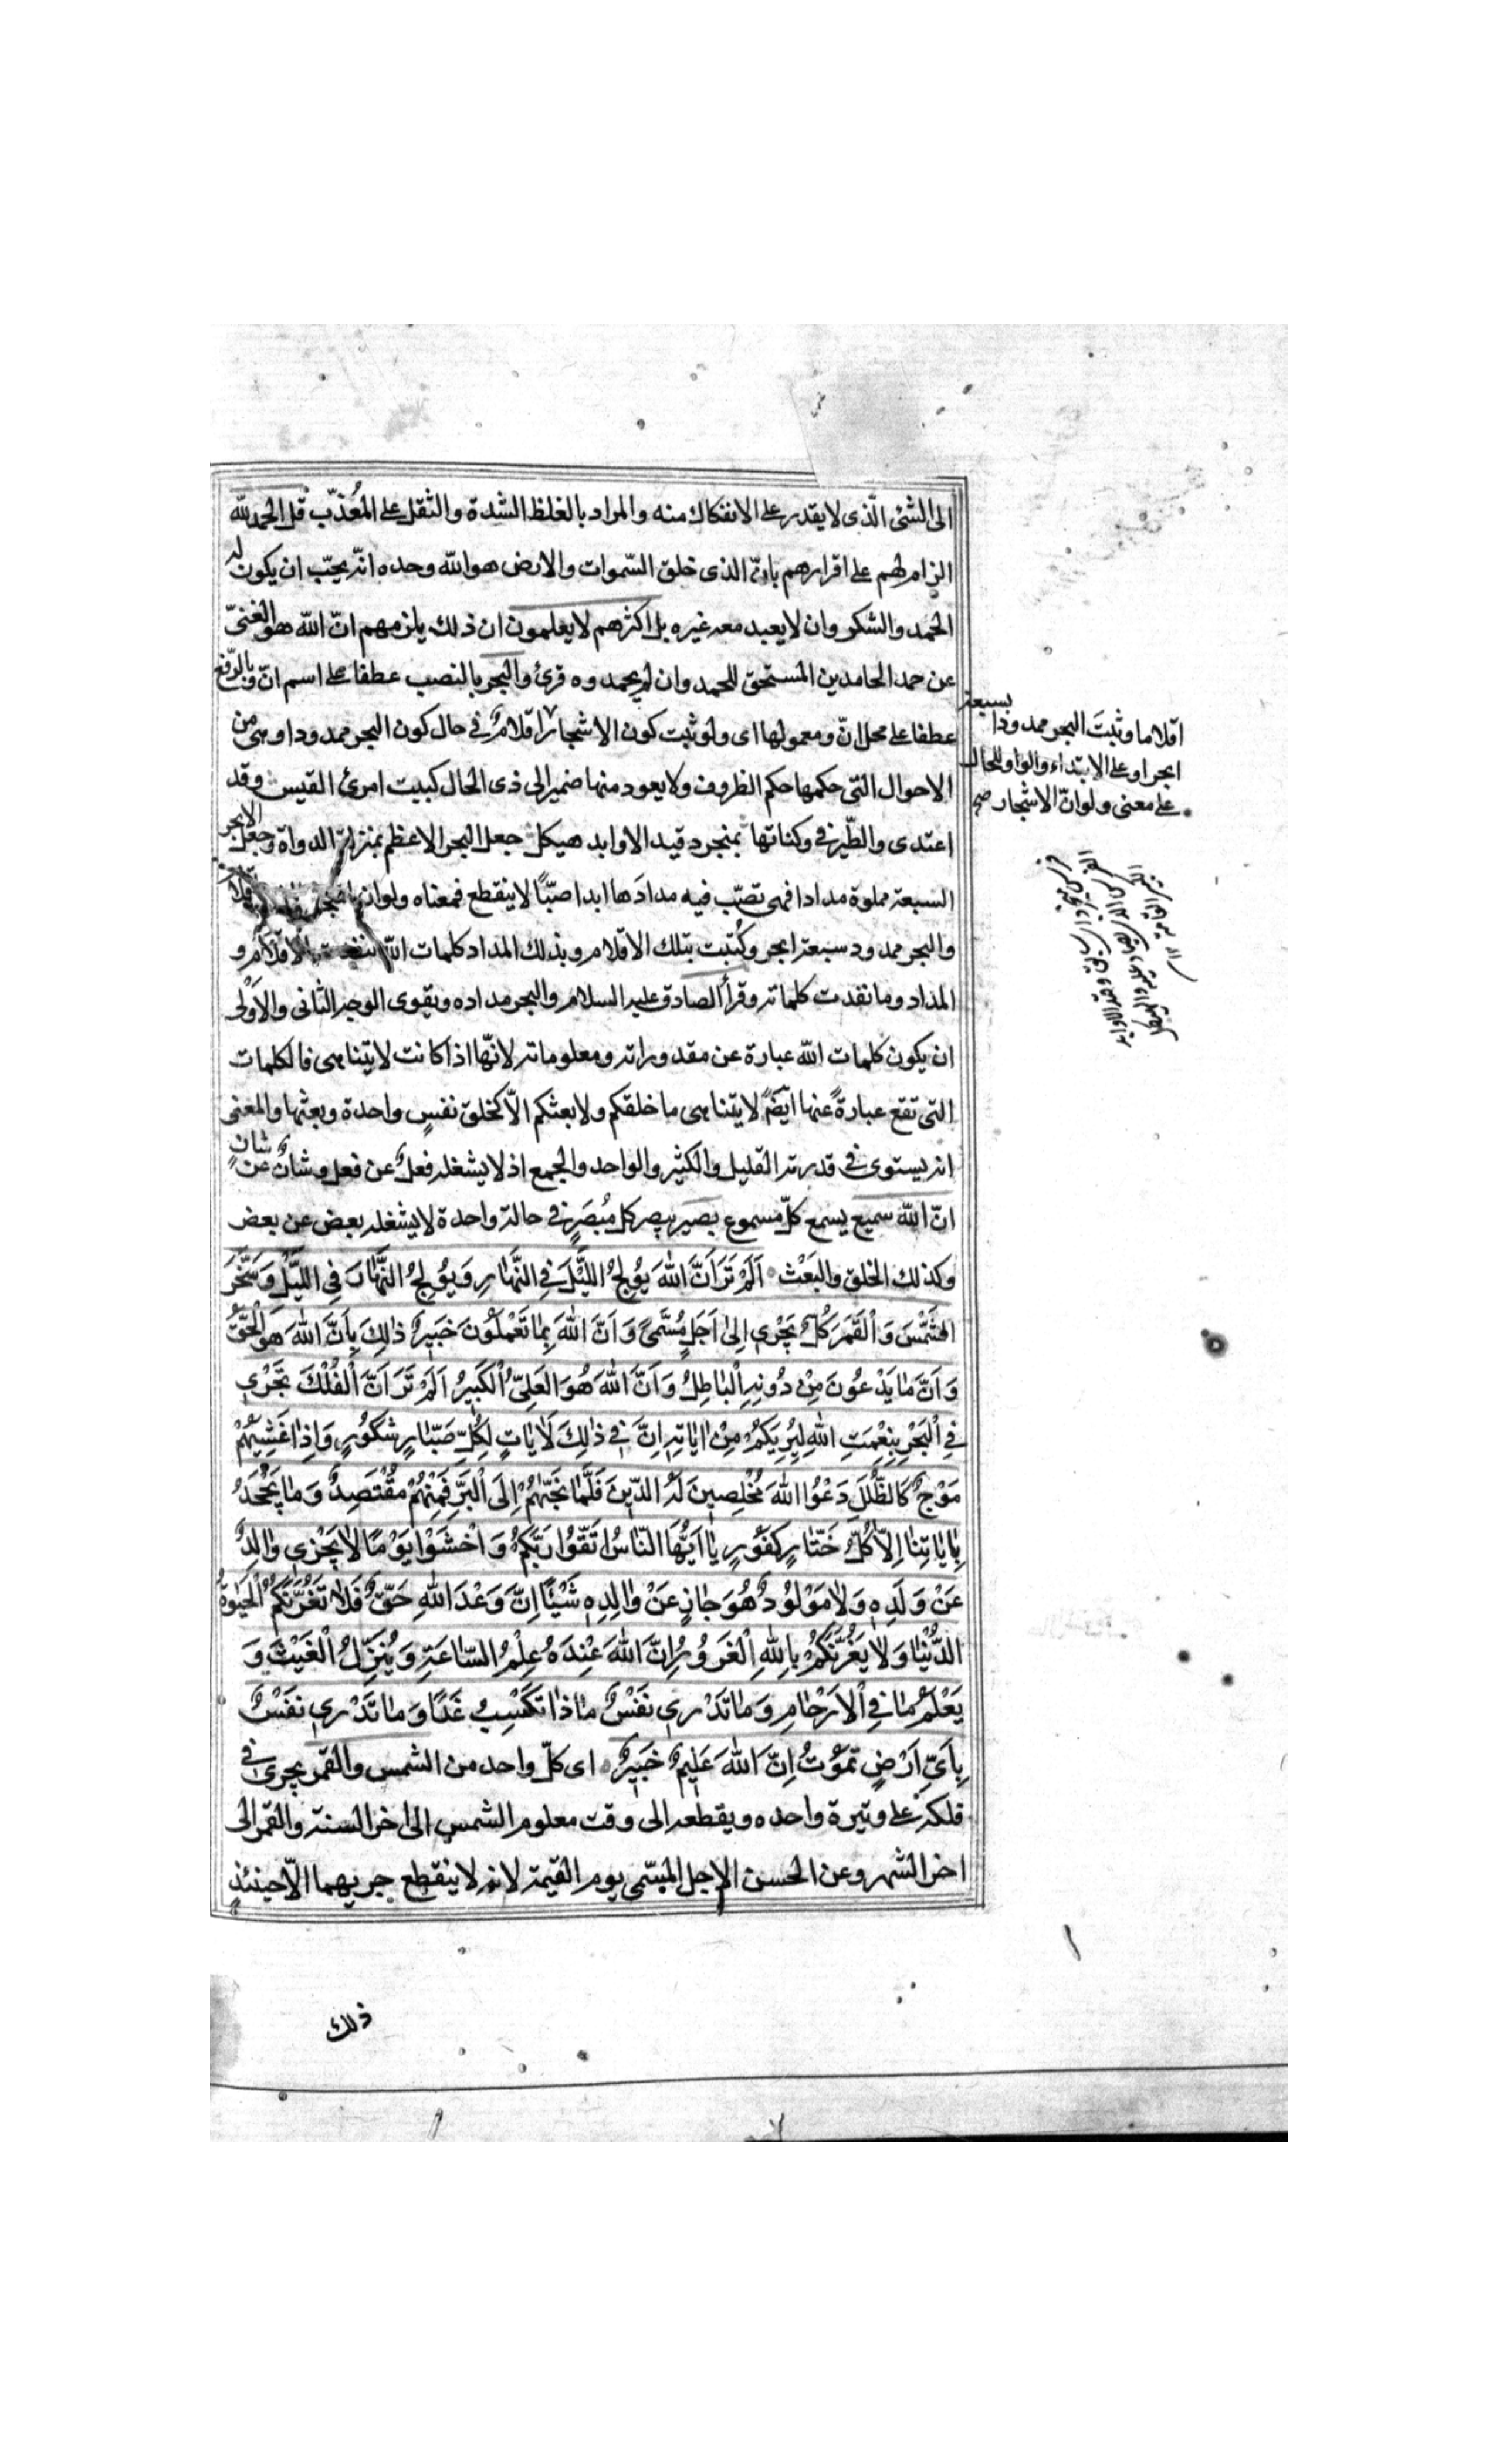 الى الشئ الّذى لا يقدر على الانفكاك منه والمراد بالغلظ الشدة والثقل على المُعذّب قل الحمد لله
الزام لهم على اقرارهم بانّ الذى خلق السّموات والارض هو الله وحده انّه يجب ان يكون له
الحمد والشكر وان لا يعبد معه غيره بل اكثرهم لا يعلمون ان ذلك يلزمهم انّ الله هو الغنىّ
عن حمد الحامدين المستحق للحمد وان لم يحمدوه قرئ والبحر بالنصب عطفا على اسم انّ وبالرّفع
عطفا على محل انّ ومعمولها اى ولو ثبت كون الاشجار اقلامٌ فى حال كون البحر ممدودا وهى من
الاحوال التى حكمها حكم الظروف ولا يعود منها ضمير الى ذى الحال كبيت امرئ القيس وقد
اعتدى والطّير فى وكناتها بمنجرد قيد الاوابد هيكل جعل البحر الاعظم بمنزلة الدواة وجعل الابحر
السبعة مملوة مدادا فهى تصبّ فيه مدادَها ابدا صبّاً لا ينقطع فمعناه ولو ان
والبحر ممدود سبعة ابحر وكُتبت بتلك الاقلام وبذلك المداد كلمات الله لنفدت الاقلام و
المداد وما نفدت كلماته وقرأ الصادق عليه السلام والبحر مداده ويقوى الوجه الثانى والاَوْلى
ان يكون كلمات الله عبارة عن مقدوراته ومعلوماته لانّها اذا كانت لا يتناهى فالكلمات
التى تقع عبارةً عنها ايضً لا يتناهى ما خلقكم ولا بعثكم الّا كخلق نفسٍ واحدة وبعثها والمعنى
انه يستوى فى قدرته القليل والكثير والواحد والجمع اذ لا يشغله فعلٌ عن فعل وشانٌ عن شانٍ
انّ الله سميع يسمع كلّ مسموع بصير يبصر كل مُبصَرٍ فى حالة واحدة لا يشغله بعض عن بعض
وكذلك الخلق والبَعْث اَلَمْ تَرَ اَنَّ اللهَ يُولِجُ اللَّيْلَ فِى النَّهٰارِ وَيُولِجُ النَّهٰارَ فِى اللَّيْلِ وَسَخَّرَ
الشَّمْسَ وَالْقَمَرَ كُلٌّ يَجْرِى اِلىٰ اَجَلٍ مُسَمًّى وَاَنَّ اللهَ بِمٰا تَعْمَلُونَ خَبِيرٌ ذٰلِكَ بِاَنَّ اللهَ هُوَ الْحَقُّ
وَاَنَّ مٰا يَدْعُونَ مِنْ دُونِهِ الْبٰاطِلُ وَاَنَّ اللهَ هُوَ الْعَلِىُّ الْكَبِيرُ اَلَمْ تَرَ اَنَّ الْفُلْكَ تَجْرِى
فِى الْبَحْرِ بِنِعْمَتِ اللهِ لِيُرِيَكُمْ مِنْ اٰيٰاتِهِ اِنَّ فِى ذٰلِكَ لَاٰيٰاتٍ لِكُلِّ صَبّٰارٍ شَكُورٍ وَاِذٰا غَشِيَهُمْ
مَوْجٌ كَالظُّلَلِ دَعَوُا اللهَ مُخْلِصِينَ لَهُ الدِّينَ فَلَمّٰا نَجّٰيهُمْ اِلَى الْبَرِّ فَمِنْهُمْ مُقْتَصِدٌ وَمٰا يَجْحَدُ
بِاٰيٰاتِنٰا اِلّٰا كُلُّ خَتّٰارٍ كَفُورٍ يٰا اَيُّهَا النّٰاسُ اتَّقُوا رَبَّكُمْ وَاخْشَوْا يَوْمًا لٰا يَجْزِى وٰالِدٌ
عَنْ وَلَدِهِ وَلٰا مَوْلُودٌ هُوَ جٰازٍ عَنْ وٰالِدِهِ شَيْئًا اِنَّ وَعْدَ اللهِ حَقٌّ فَلٰا تَغُرَّنَّكُمُ الْحَيٰوةُ
الدُّنْيٰا وَلٰا يَغُرَّنَّكُمْ بِاللهِ الْغَرُورُ اِنَّ اللهَ عِنْدَهُ عِلْمُ السّٰاعَةِ وَيُنَزِّلُ الْغَيْثَ وَ
يَعْلَمُ مٰا فِى الْاَرْحٰامِ وَمٰا تَدْرِى نَفْسٌ مٰاذٰا تَكْسِبُ غَدًا وَمٰا تَدْرِى نَفْسٌ
بِاَىِّ اَرْضٍ تَمُوتُ اِنَّ اللهَ عَلِيمٌ خَبِيرٌ اى كلّ واحد من الشمس والقمر يجرى فى
فلكه على وتيرة واحده ويقطعه الى وقت معلوم الشمس الى اخر السنة والقمر الى
اخر الشهر وعن الحسن الاجل المسمّى يوم القيمة لانه لا ينقطع جريهما الّا حينئذٍ
ذلك
بسبعة
اقلاما وثبتَ البحر ممدودا
ابحر او على الابتداء والواو للحال
على معنى ولو انّ الاشجار صح